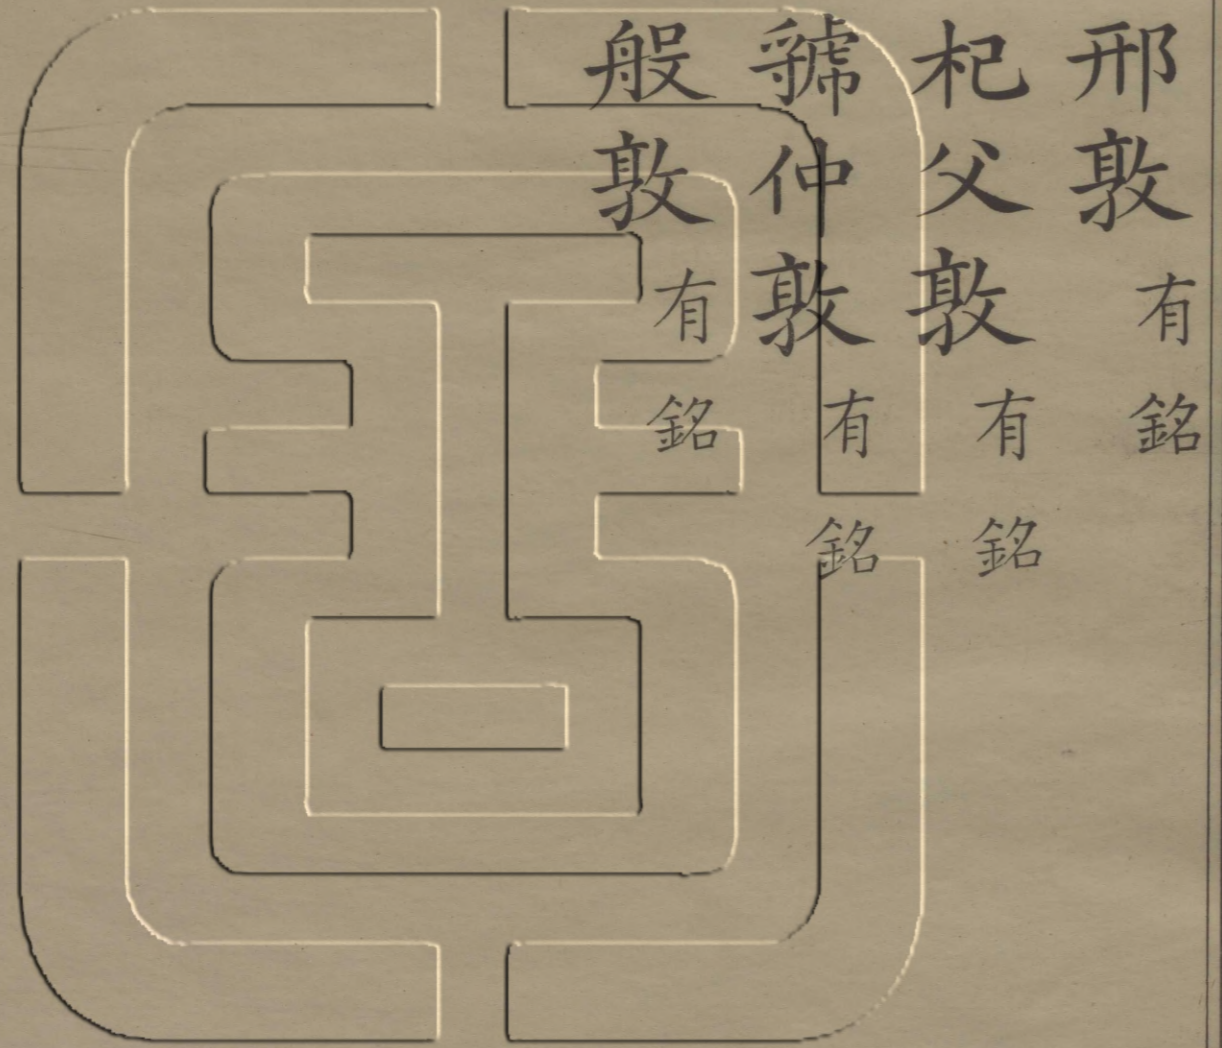 邢敦有銘
杞父敦有銘
虢仲敦有銘
般敦有銘